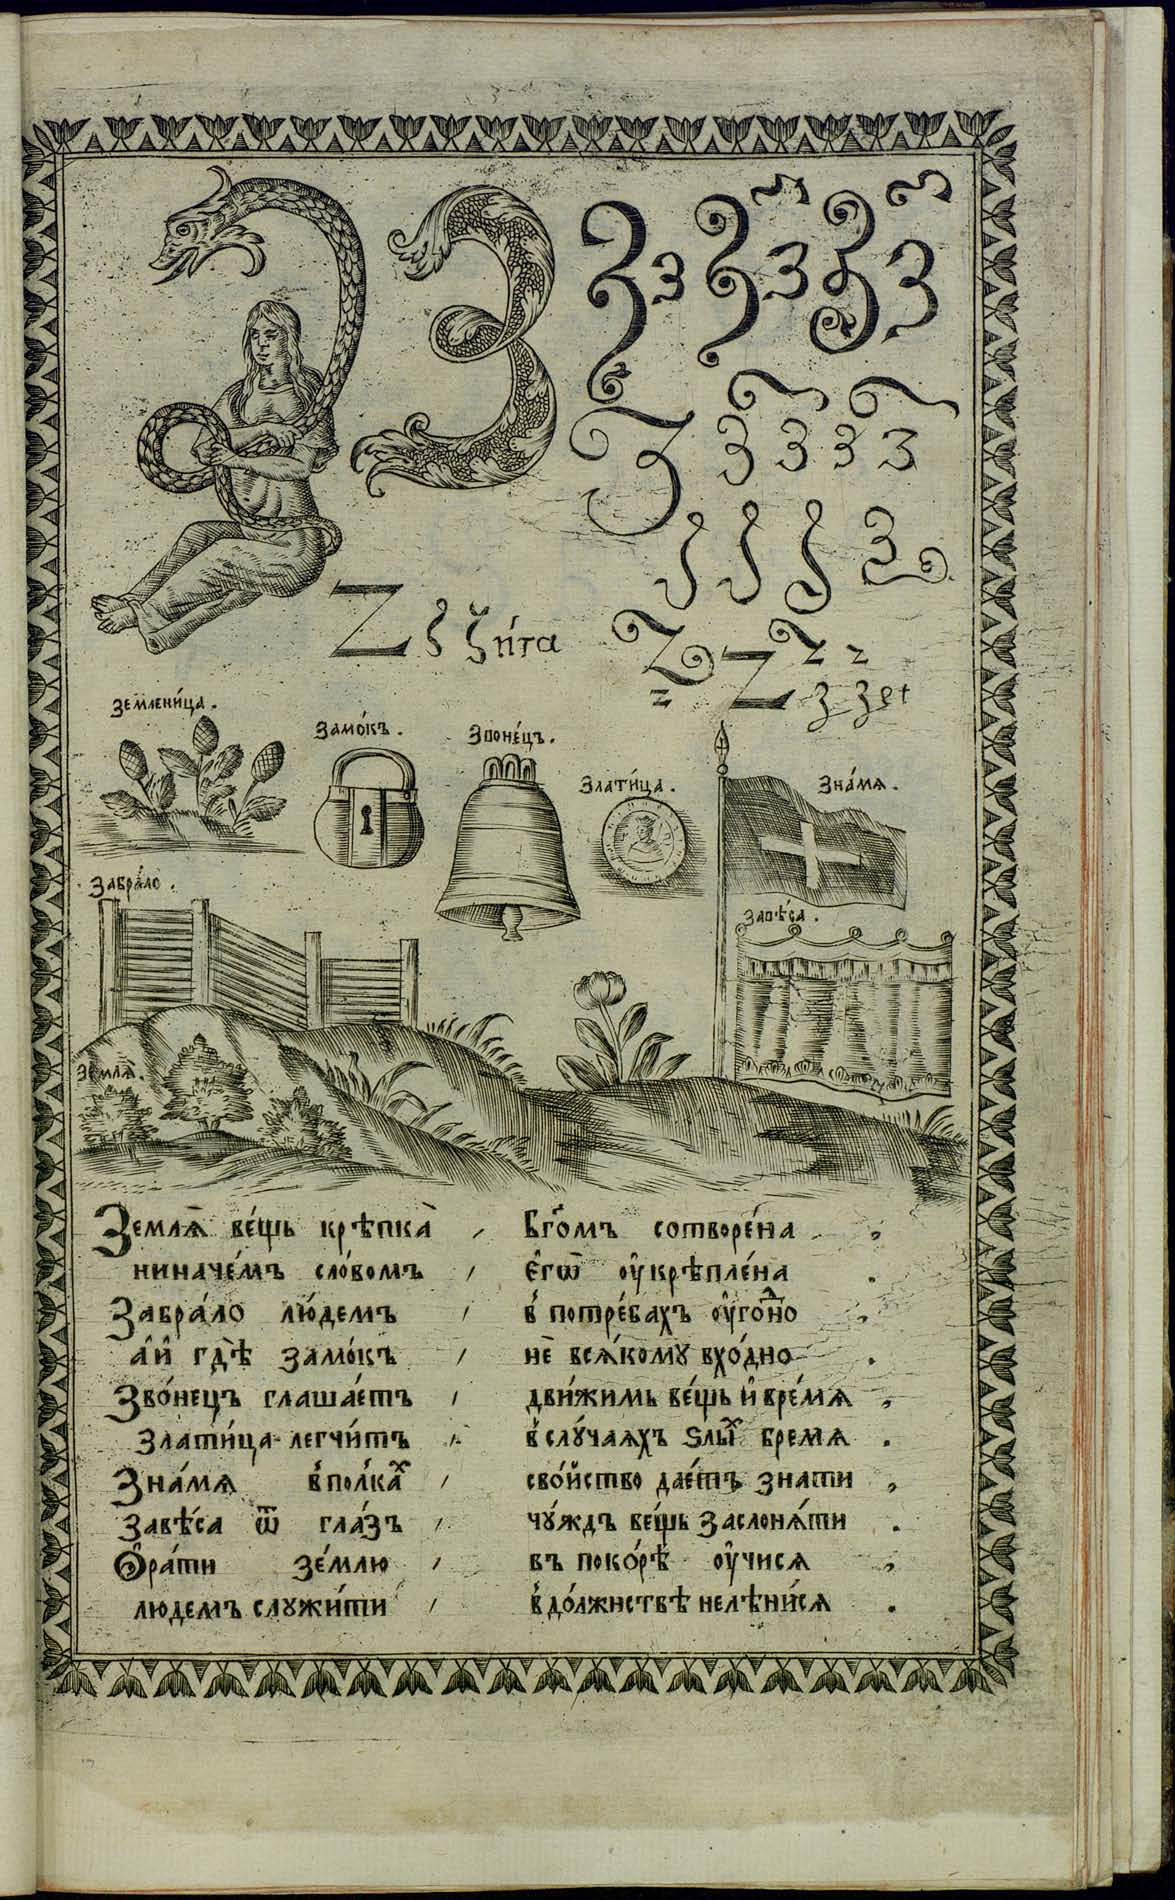 З З З з З з З з
З з з з з
З
Ζ ζ ζи́та
Z z Z z z z
з зet
Землени́ца.
Замо́къ.
Звоне́цъ.
Злати́ца.
Зна́мѧ.
Забра́ло.
Завѣ́са.
Землѧ̀.
Землѧ̀ ве́щь крѣпка̀ , Бг҃омъ сотворе́на ,
ниначе́мъ сло́вомъ , є҆гѡ̀ ᲂу҆крѣпле́на .
Забра́ло лю́демъ , в потре́бахъ ᲂу҆го́дно ,
а҆ и҆ гдѣ̀ замо́къ , не всѧ́кому вхо́дно .
Зво́нецъ глаша́етъ , дви́жимь ве́щь и҆ вре́мѧ ,
злати́ца легчи́тъ , в слу́чаѧхъ ѕлы́х бремѧ .
Зна́мѧ в полка́х , сво́йство дае́тъ знати ,
завѣ́са ѿ гла́зъ , чу́ждъ ве́щь заслонѧ́ти .
Ѻ҆ра́ти зе́млю , въ поко́рѣ ᲂу҆чисѧ ,
людемъ служи́ти , в до́лжнствѣ нелѣни́сѧ .